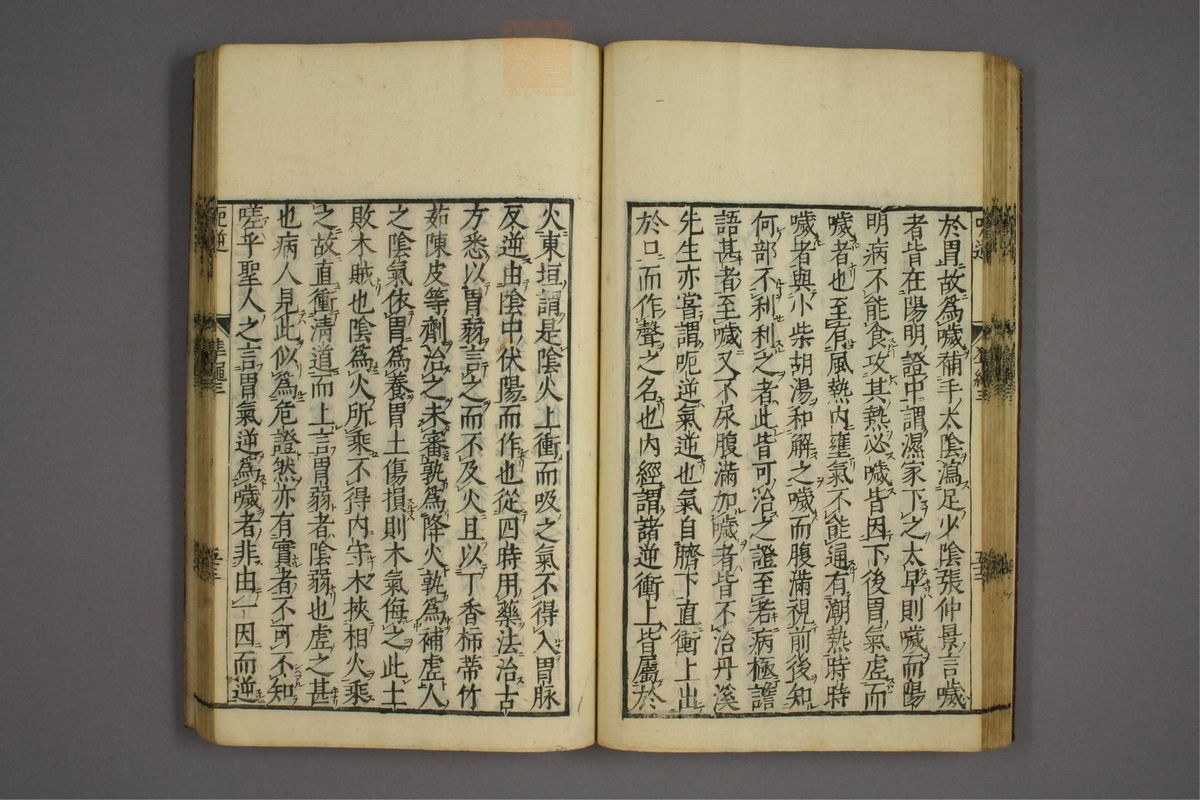 於胃故爲噦補手太陰瀉足少陰張仲景言噦
者皆在陽明證中謂濕家下之太早則噦而陽
明病不能食攻其熱必噦皆因下後胃氣虛而
噦者也至有風熱內壅氣不能通有潮熱時時
噦者與小柴胡湯和解之噦而腹滿視前後知
何部不利利之者此皆可治之證至若病極讝
語甚者至噦又不尿腹滿加噦者皆不治丹溪
先生亦嘗謂呃逆氣逆也氣自臍下直衝上出
於口而作聲之名也內經謂諸逆衝上皆屬於
火東垣謂是陰火上衝而吸之氣不得入胃脉
反逆由陰中伏陽而作也從四時用藥法治古
方悉以胃弱言之而不及火且以丁香柿蒂竹
茹陳皮等劑治之未審孰爲降火孰爲補虛人
之陰氣依胃爲養胃土傷損則木氣侮之此土
敗木賊也陰爲火所乘不得內守木挾相火乘
之故直衝清道而上言胃弱者陰弱也虛之甚
也病人見此似爲危證然亦有實者不可不知
嗟乎聖人之言胃氣逆爲噦者非由一因而逆